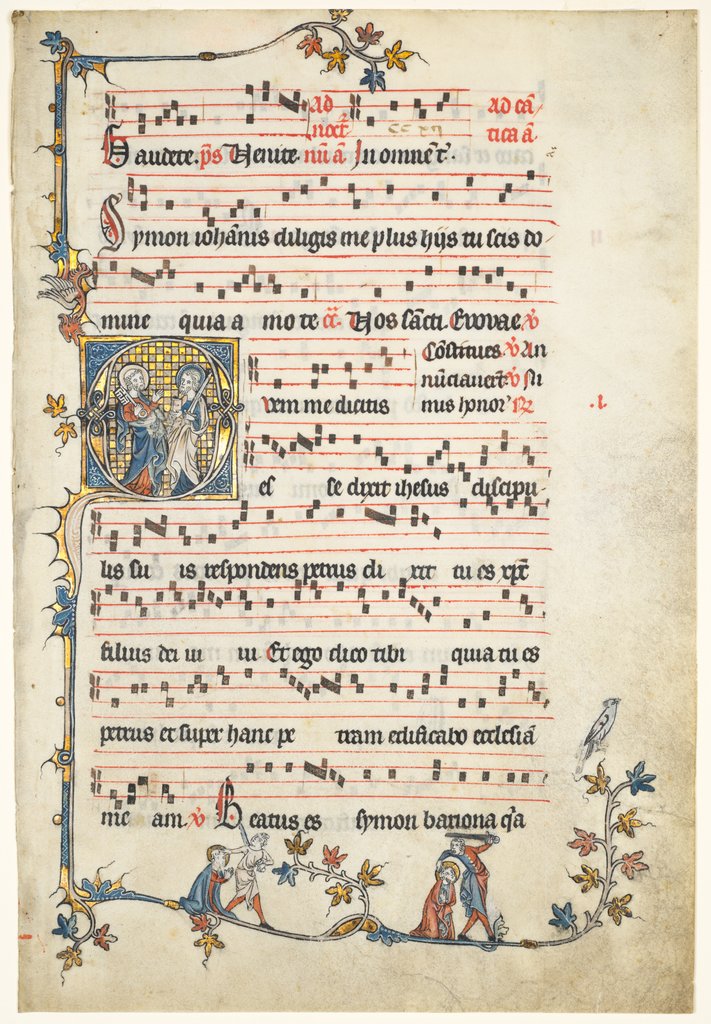 Gaudete. p̄s Venite. nū ā In omnē t̄. Ad noct̄ Ad cā tica ā
Symon ioh̄anis diligis me plus hijs tu scis do
mine quia a mo te Vos s̄acti. Evovae. v̄
Cōstitues. v̄ An
nūciauer̄t v̄ Ni
Q vem me dicitis mus honor'
es se dixit ihesus discipu
lis su is respondens petrus di xit tu es xp̄c
filius dei ui ui Et ego dico tibi quia tu es
petrus et super hanc pe tram edificabo ecclesiā
me am. v̄ Beatus es symon bariona q̄a